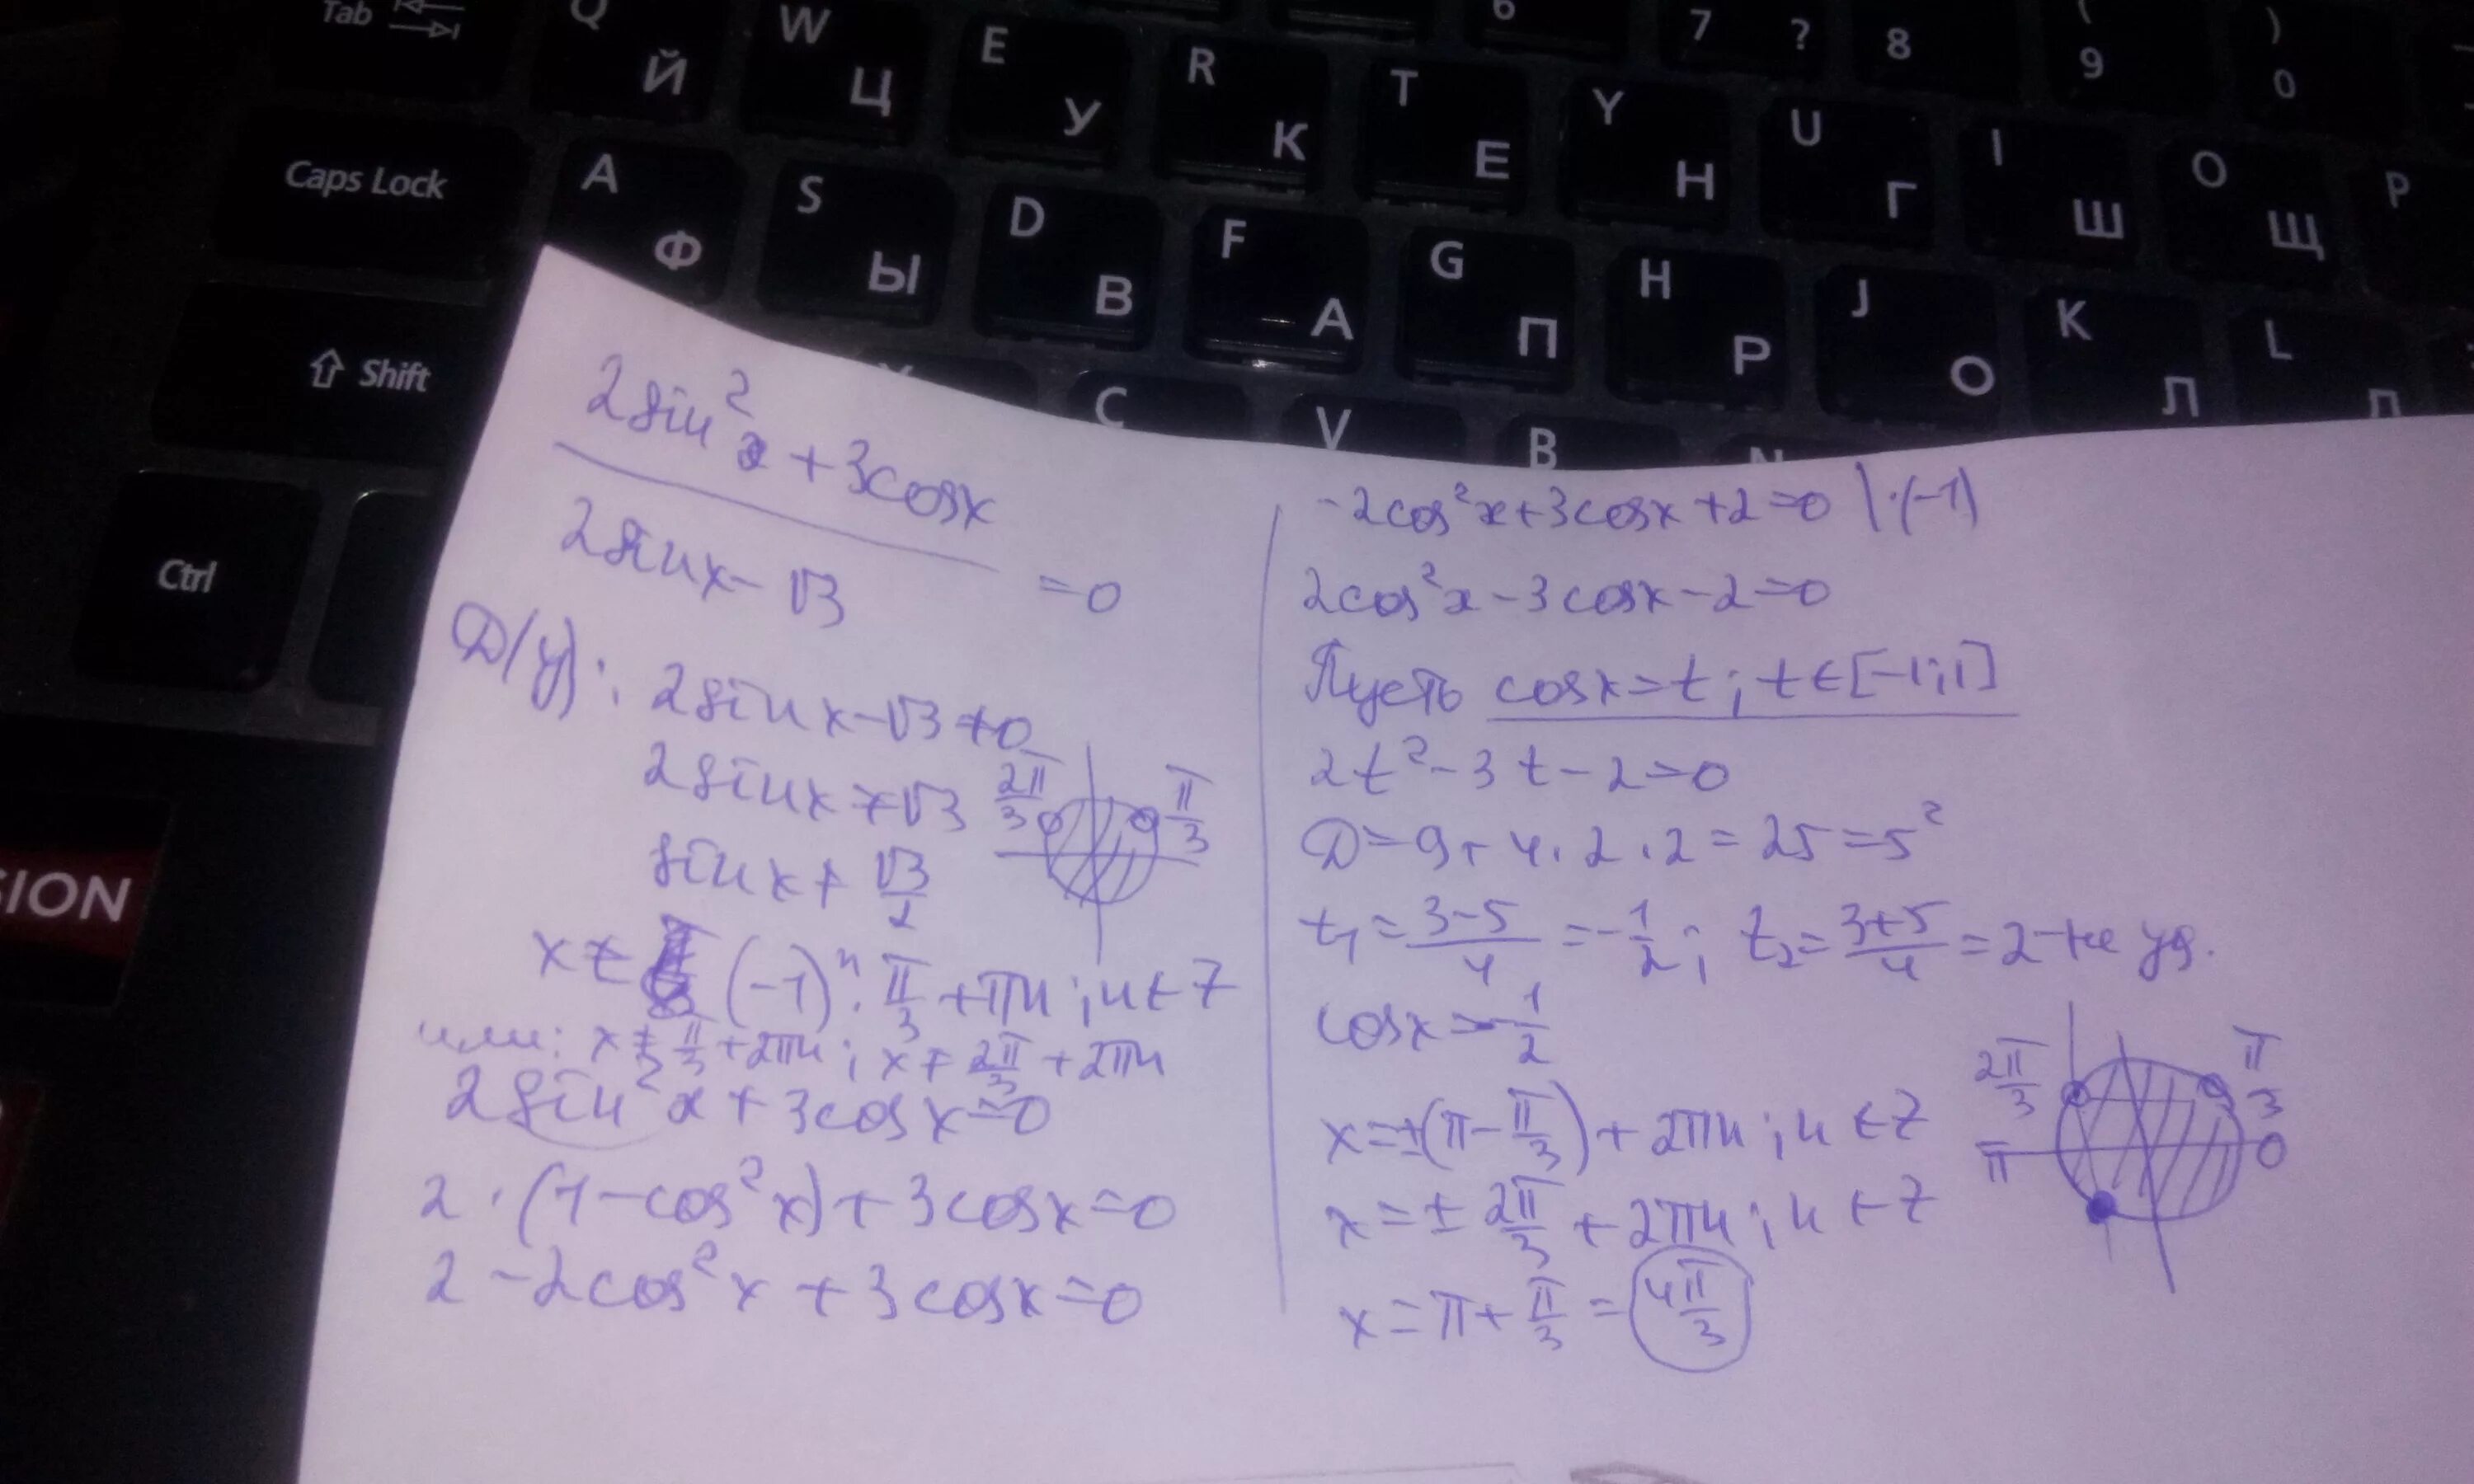 Tab Q Й W Ц E У R К T Е Y Н U Г I Ш O Щ P
6 7 ? 8 ( 9 ) 0
Caps Lock A Ф S Ы D В F А G П H Р J О K Л L
Shift C V B
Ctrl
SION
2sin²x + 3cosx
2sinx - √3 = 0
D(y): 2sinx - √3 ≠ 0
2sinx ≠ √3
sinx ≠ √3/2
2π/3 π/3
x ≠ (-1)ⁿ · π/3 + πn; n ∈ Z
или: x ≠ π/3 + 2πn; x ≠ 2π/3 + 2πn
2sin²x + 3cosx = 0
2 · (1 - cos²x) + 3cosx = 0
2 - 2cos²x + 3cosx = 0
-2cos²x + 3cosx + 2 = 0 | ·(-1)
2cos²x - 3cosx - 2 = 0
Пусть cosx = t; t ∈ [-1; 1]
2t² - 3t - 2 = 0
D = 9 + 4 · 2 · 2 = 25 = 5²
t₁ = (3-5)/4 = -1/2; t₂ = (3+5)/4 = 2 - не уд.
cosx = -1/2
x = ±(π - π/3) + 2πn; n ∈ Z
x = ± 2π/3 + 2πn; n ∈ Z
x = π + π/3 = 4π/3
2π/3 π/3
π 0